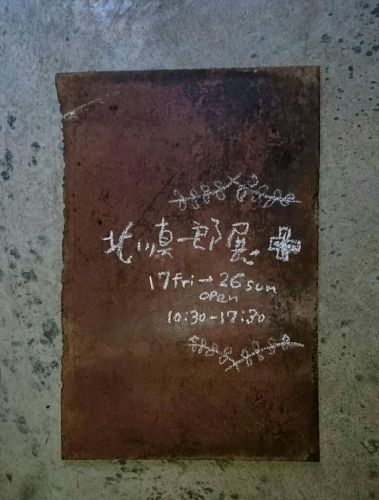 北川真一郎展
17fri→26sun
open
10:30-17:30